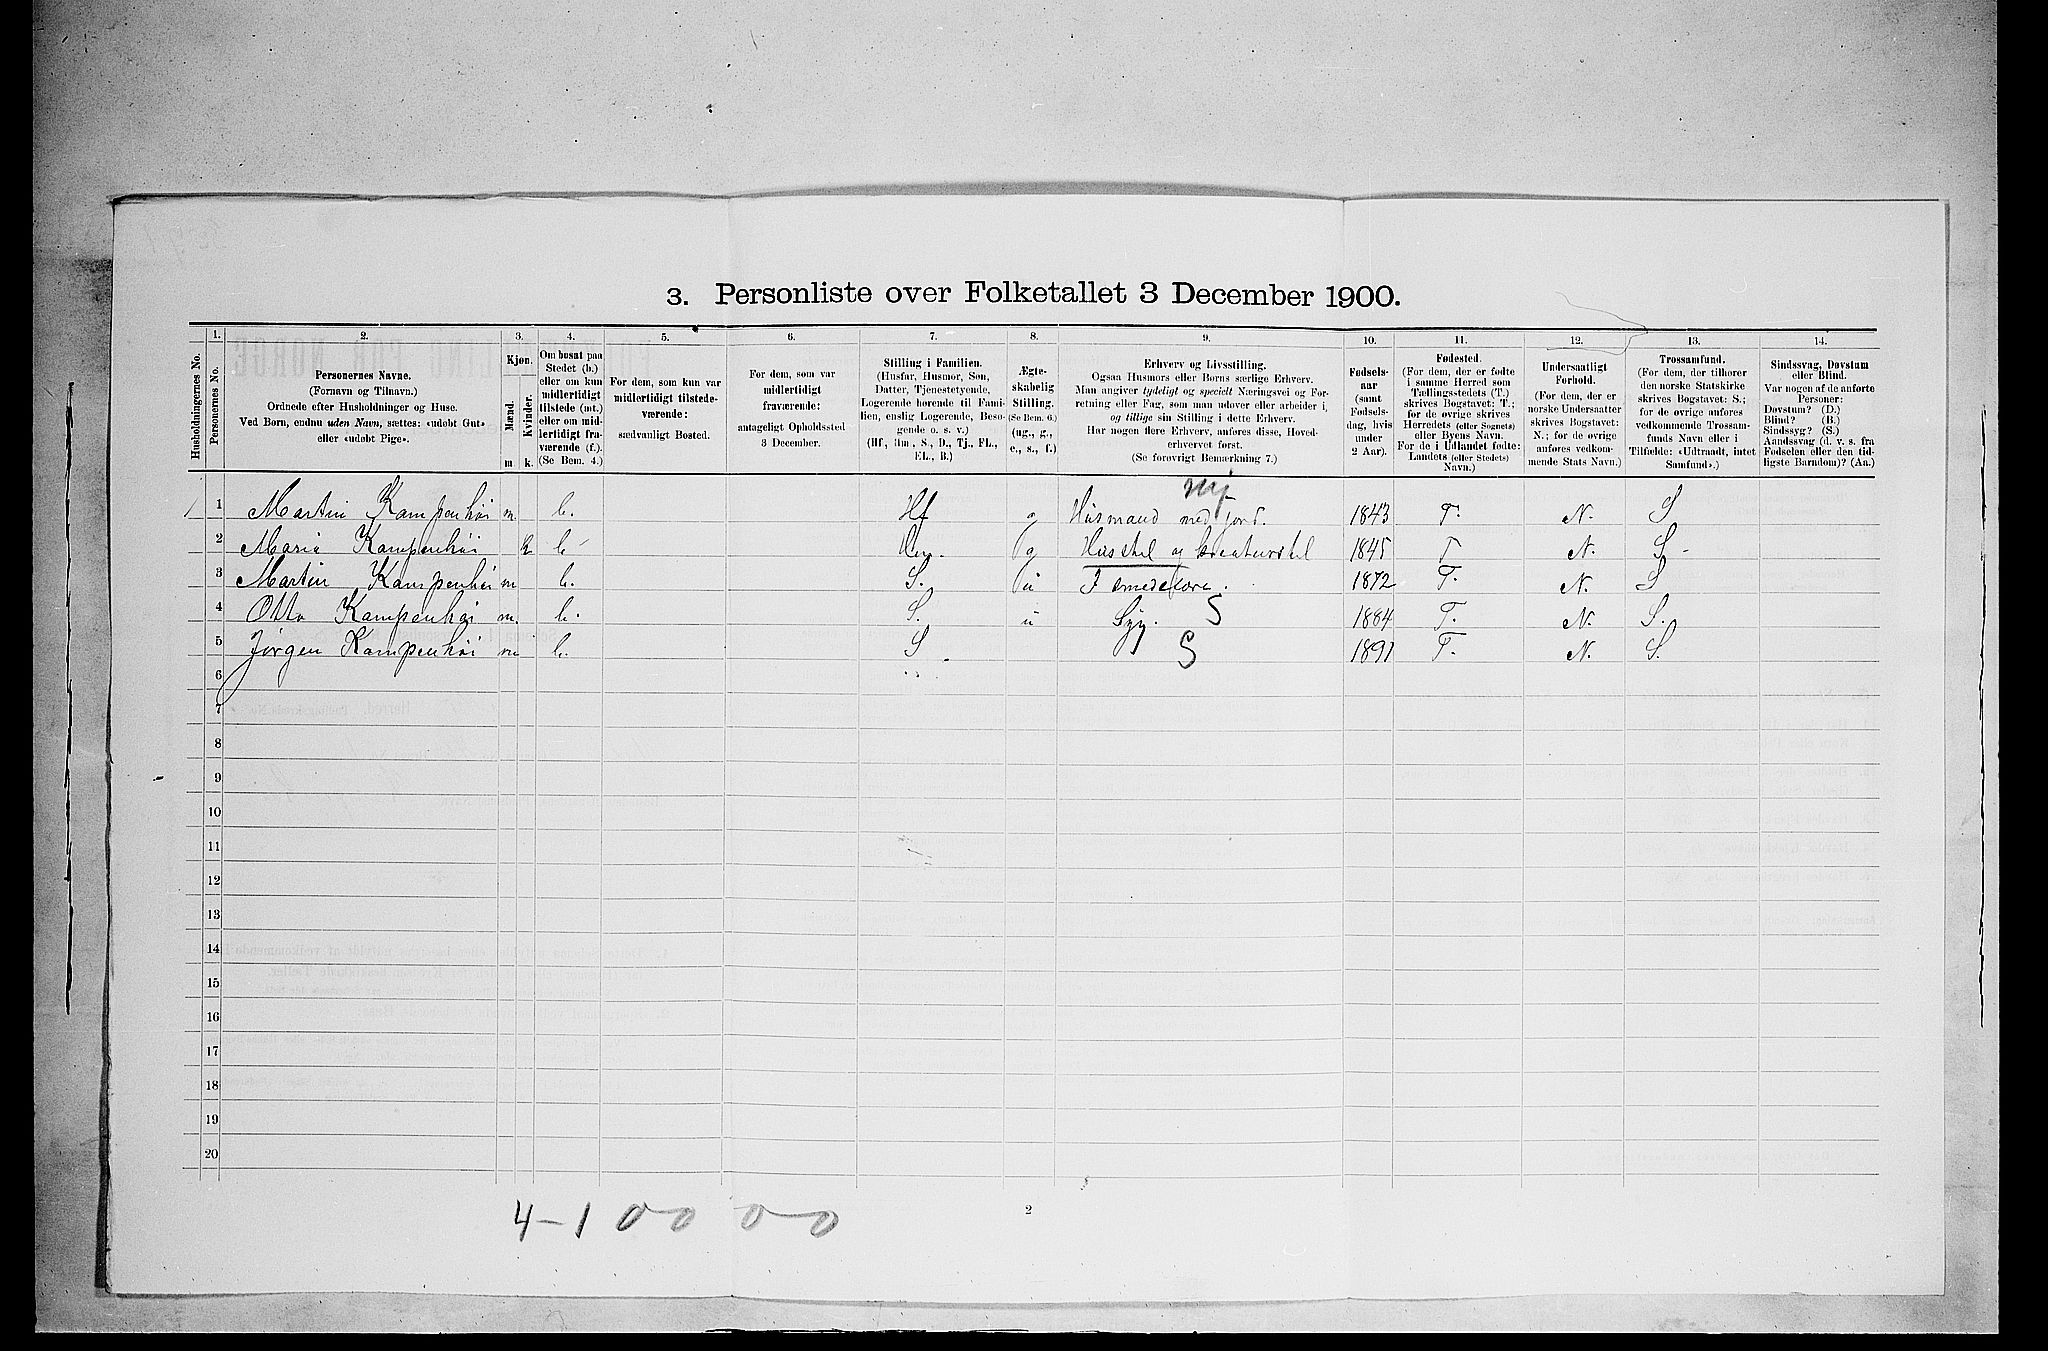 3. Personliste over Folketallet 3 December 1900.
Husholdningernes No.
1.
Personernes No.
2.
Personernes Navne.
(Fornavn og Tilnavn.)
Ordnede efter Husholdninger og Huse.
Ved Børn, endnu uden Navn, sættes: «udøbt Gut»
eller «udøbt Pige».
3.
Kjøn.
Mænd.
Kvinder.
m.
k.
4.
Om bosat paa
Stedet (b.)
eller om kun
midlertidigt
tilstede (mt.)
eller om mid-
lertidigt fra-
værende (f.).
(Se Bem. 4.)
5.
For dem, som kun var
midlertidigt tilstede-
værende:
sædvanligt Bosted.
6.
For dem, som var
midlertidigt
fraværende:
antageligt Opholdssted
3 December.
7.
Stilling i Familien.
(Husfar, Husmor, Søn,
Datter, Tjenestetyende,
Logerende hørende til Fami-
lien, enslig Logerende, Besø-
gende o. s. v.)
(Hf, Hm, S., D., Tj., FL.,
EL., B.)
8.
Ægte-
skabelig
Stilling.
(Se Bem. 6.)
(ug., g.,
e., s., f.)
9.
Erhverv og Livsstilling.
Ogsaa Husmors eller Børns særlige Erhverv.
Man angiver tydeligt og specielt Næringsvei og For-
retning eller Fag, som man udøver eller arbeider i,
og tillige sin Stilling i dette Erhverv.
Har nogen flere Erhverv, anføres disse, Hoved-
erhvervet først.
(Se forøvrigt Bemærkning 7.)
10.
Fødsels-
aar
(samt
Fødsels-
dag, hvis
under
2 Aar).
11.
Fødested.
(For dem, der er fødte
i samme Herred som
Tællingsstedets (T.)
skrives Bogstavet: T.;
for de øvrige skrives
Herredets (eller Sognets)
eller Byens Navn.
For de i Udlandet fødte:
Landets (eller Stedets)
Navn.)
12.
Undersaatligt
Forhold.
(For dem, der er
norske Undersaatter
skrives Bogstavet:
N.; for de øvrige
anføres vedkom-
mende Stats Navn.)
13.
Trossamfund.
(For dem, der tilhører
den norske Statskirke
skrives Bogstavet: S.;
for de øvrige anføres
vedkommende Trossam-
funds Navn eller i
Tilfælde: «Udtraadt, intet
Samfund».)
14.
Sindssvag, Døvstum
eller Blind.
Var nogen af de anførte
Personer:
Døvstum? (D.)
Blind? (B.)
Sindssyg? (S.)
Aandssvag (d. v. s. fra
Fødselen eller den tid-
ligste Barndom)? (Aa.)
1 1 Martin Kampenhøi m. b. Hf g Husmand med jord. 1843 T. N. S
2 Maria Kampenhøi k b Hm. g Husstel og kreaturstel 1845 T N. S
3 Martin Kampenhøi m b. S. u 1872 T. N. S
4 Otto Kampenhøi m. b. S. u S 1884 T. N. S.
5 Jørgen Kampenhøi m b. S S 1891 T. N. S.
6
7
8
9
10
11
12
13
14
15
16
17
18
19
20
4-1 00 00
2